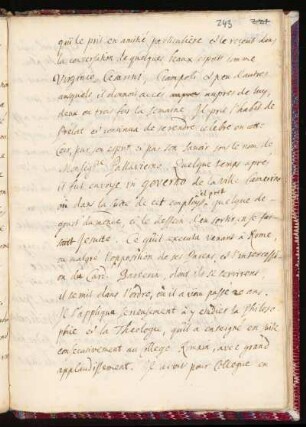 243
qu'il le prit en amitié particuliere et le reçeut dans
la conversation de quelques beaux esprits comme
Virginio Cesarini, Ciampoli et peu d'autres
auquels il donnoit acces aupres de luy,
deux ou trois fois la semaine. Il prit l'habit de
Prelat et continua de se rendre celebre en
par son esprit et par son sçavoir sous le nom de
Monsigr Pallavicino. Quelque temps apres
il fut envoyé in governo de la ville
où dans la suite de cet employ il prit quelque de-
goust du monde, et le dessein d'en sortir, en se fai-
sant Jesuite. Ce qu'il executa venant à Rome
ou malgré l'opposition de ses Parens, et l'intercession
du Card. dont ils se servirent
il se mit dans l'ordre, où il a vécu passé ans.
Il s'appliqua serieusement à y étudier la Philoso-
phie et la Theologie, qu'il a enseigné en suite
consecutivement au College Romain, avec grand
applaudissement. Il avoit pour Collegue en